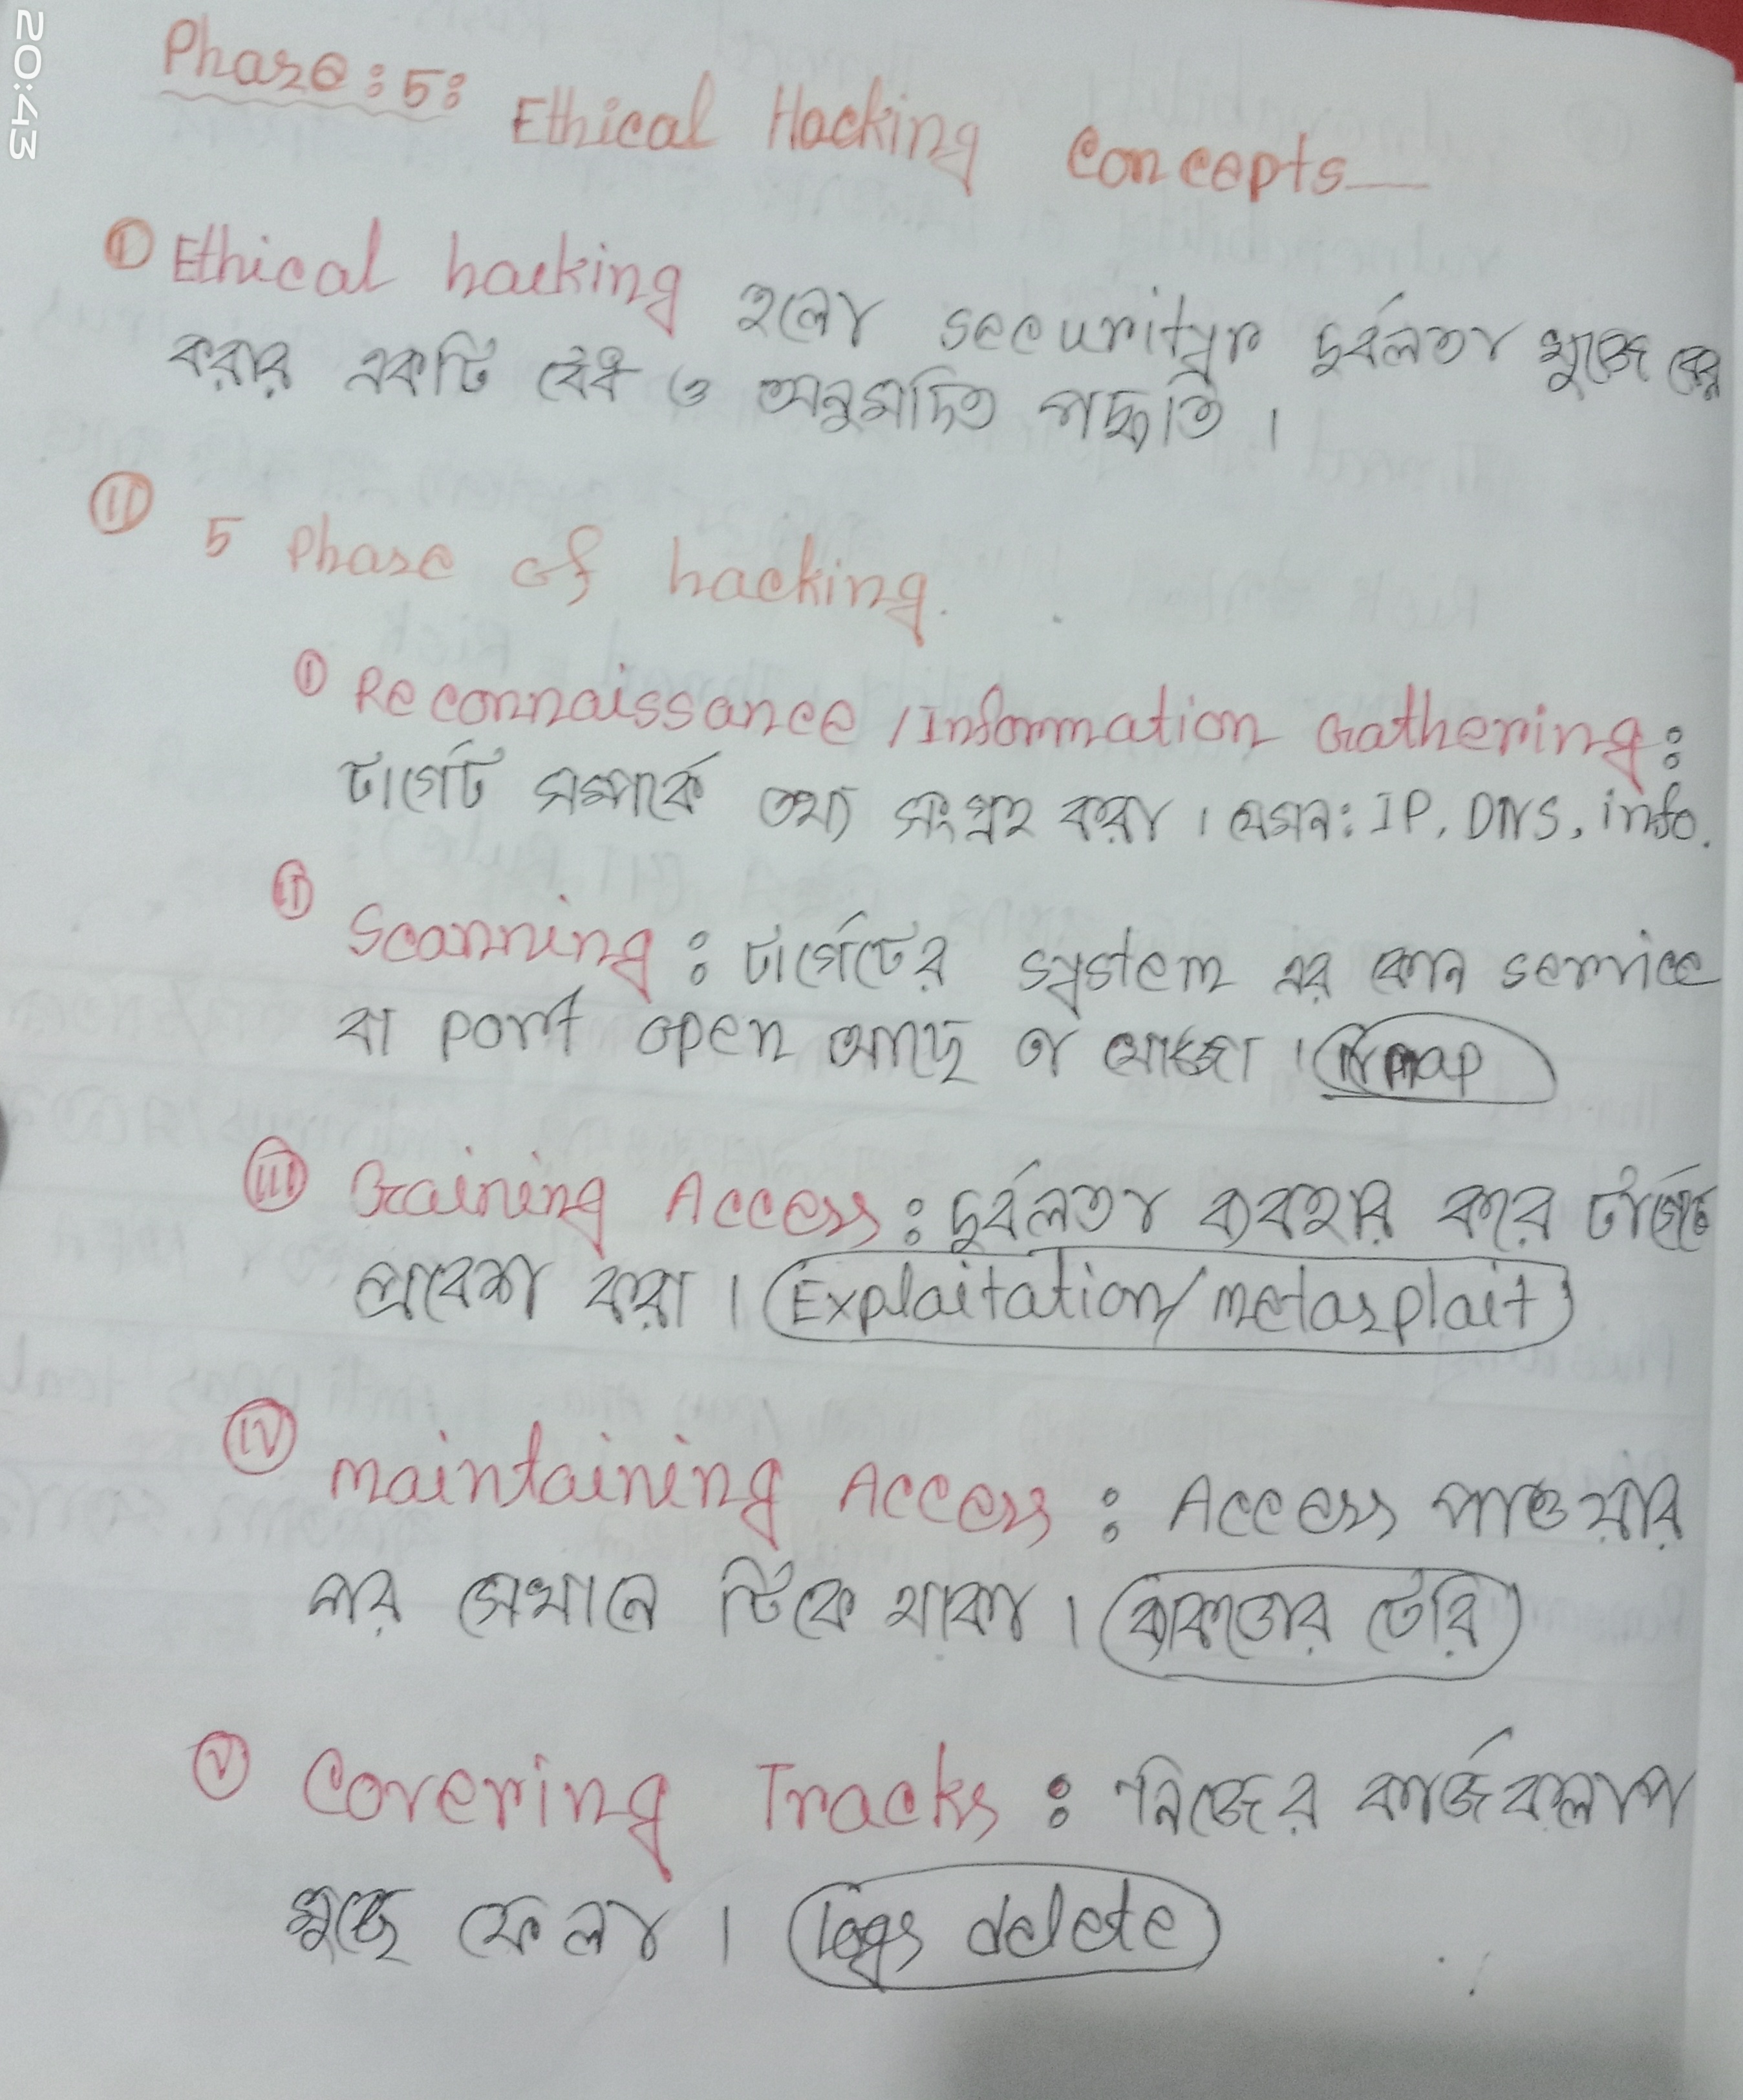 20:43
Phase : 5 : Ethical Hacking Concepts
① Ethical hacking হলো securityর দুর্বলতা খুজে বের
করার একটি বৈধ ও অনুমদিত পদ্ধতি ।
⑪ 5 Phase of hacking.
① Reconnaissance / Information Gathering :
টার্গেট সম্পর্কে তথ্য সংগ্রহ করা । যেমন : IP, DNS, info.
⑪ Scanning : টার্গেটের system এর কোন service
বা port open আছে তা খোজা । Nmap
⑪ Gaining Access : দুর্বলতা ব্যবহার করে টার্গেটে
প্রবেশ করা । Explaitation/metasplait
Ⅳ Maintaining Access : Access পাওয়ার
পর সেখানে টিকে থাকা । ব্যাকডোর তৈরি
Ⅴ Covering Tracks : নিজের কার্জকলাপ
মুছে ফেলা । Logs delete